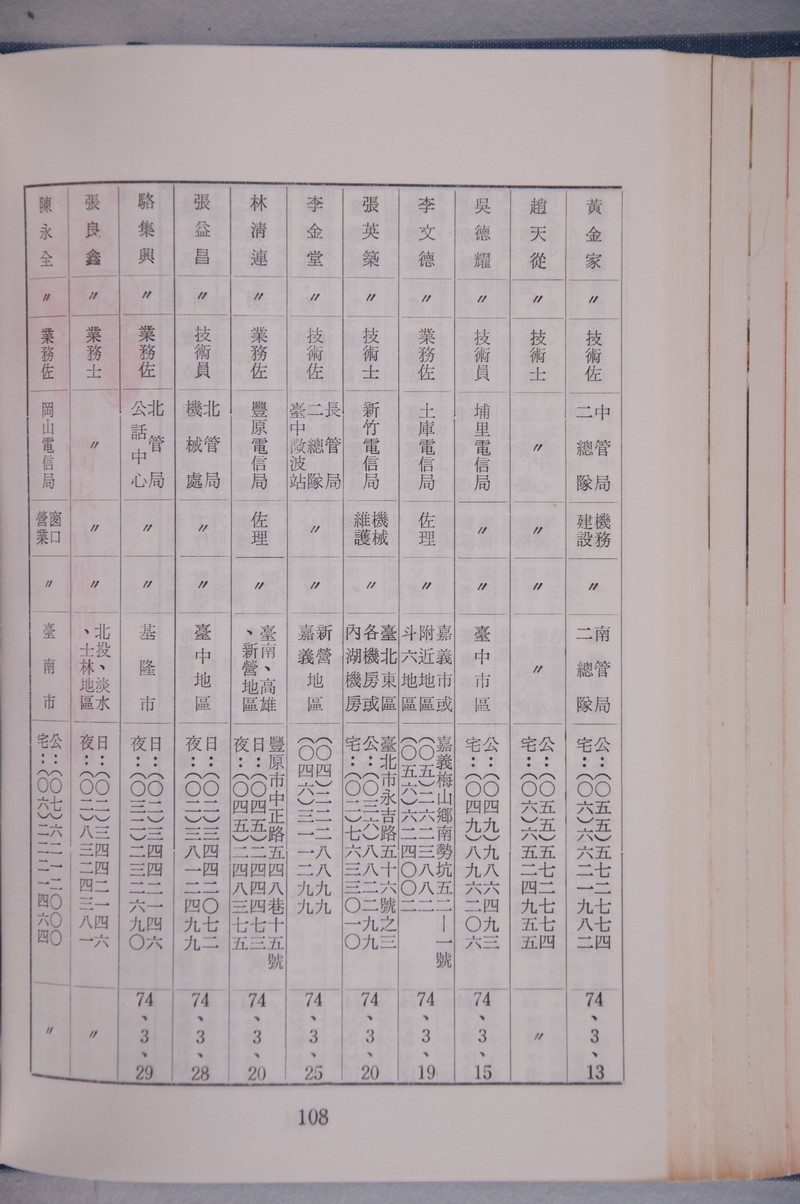 黃金家 〃 技術佐 中管局二總隊 機務建設 〃 南管局二總隊 公：(〇五)五五七二七七四 宅：(〇六)六六二一九八二 74、3、13
趙天從 〃 技術士 〃 〃 〃 〃 公：(〇五)五五七二七七四 宅：(〇六)六五二四九五五 〃
吳德耀 〃 技術員 埔里電信局 〃 〃 臺中市區 公：(〇四九)九八六四九三 宅：(〇四九)八九六二〇六 74、3、15
李文德 〃 業務佐 土庫電信局 佐理 〃 嘉義市或附近地區斗六地區 嘉義梅山鄉南勢坑五二｜一號 (〇五)二六二三八八二 (〇五六)六二四〇〇二 74、3、19
張英築 〃 技術士 新竹電信局 機械維護 〃 臺北東區各機房或內湖機房 臺北市永吉路五十六號之三 公：(〇三六)八八二二九九 宅：(〇二)七六三三〇一〇 74、3、20
李金堂 〃 技術佐 長管局二總隊臺中微波站 〃 〃 新營嘉義地區 (〇四)二二二八八九九 (〇四六)三一一二九九 74、3、25
林清連 〃 業務佐 豐原電信局 佐理 〃 臺南、高雄、新營地區 豐原市中正路五四八巷十五號 日：(〇四五)二四四四七三 夜：(〇四五)二四八三七五 74、3、20
張益昌 〃 技術員 北管局機械處 〃 〃 臺中地區 日：(〇二)三四四二〇七二 夜：(〇二)三八一二四九九 74、3、28
駱集興 〃 業務佐 北管局公話中心 〃 〃 基隆市 日：(〇二)三四四二一四六 夜：(〇三二)二三二六九〇 74、3、29
張良鑫 〃 業務士 〃 〃 〃 北投、淡水、士林地區 日：(〇二)三四四二一四六 夜：(〇二)八三二四三八一 〃
陳永全 〃 業務佐 岡山電信局 窗口營業 〃 臺南市 公：(〇七)六二一二〇〇〇 宅：(〇六)二二二一四六四 〃
108